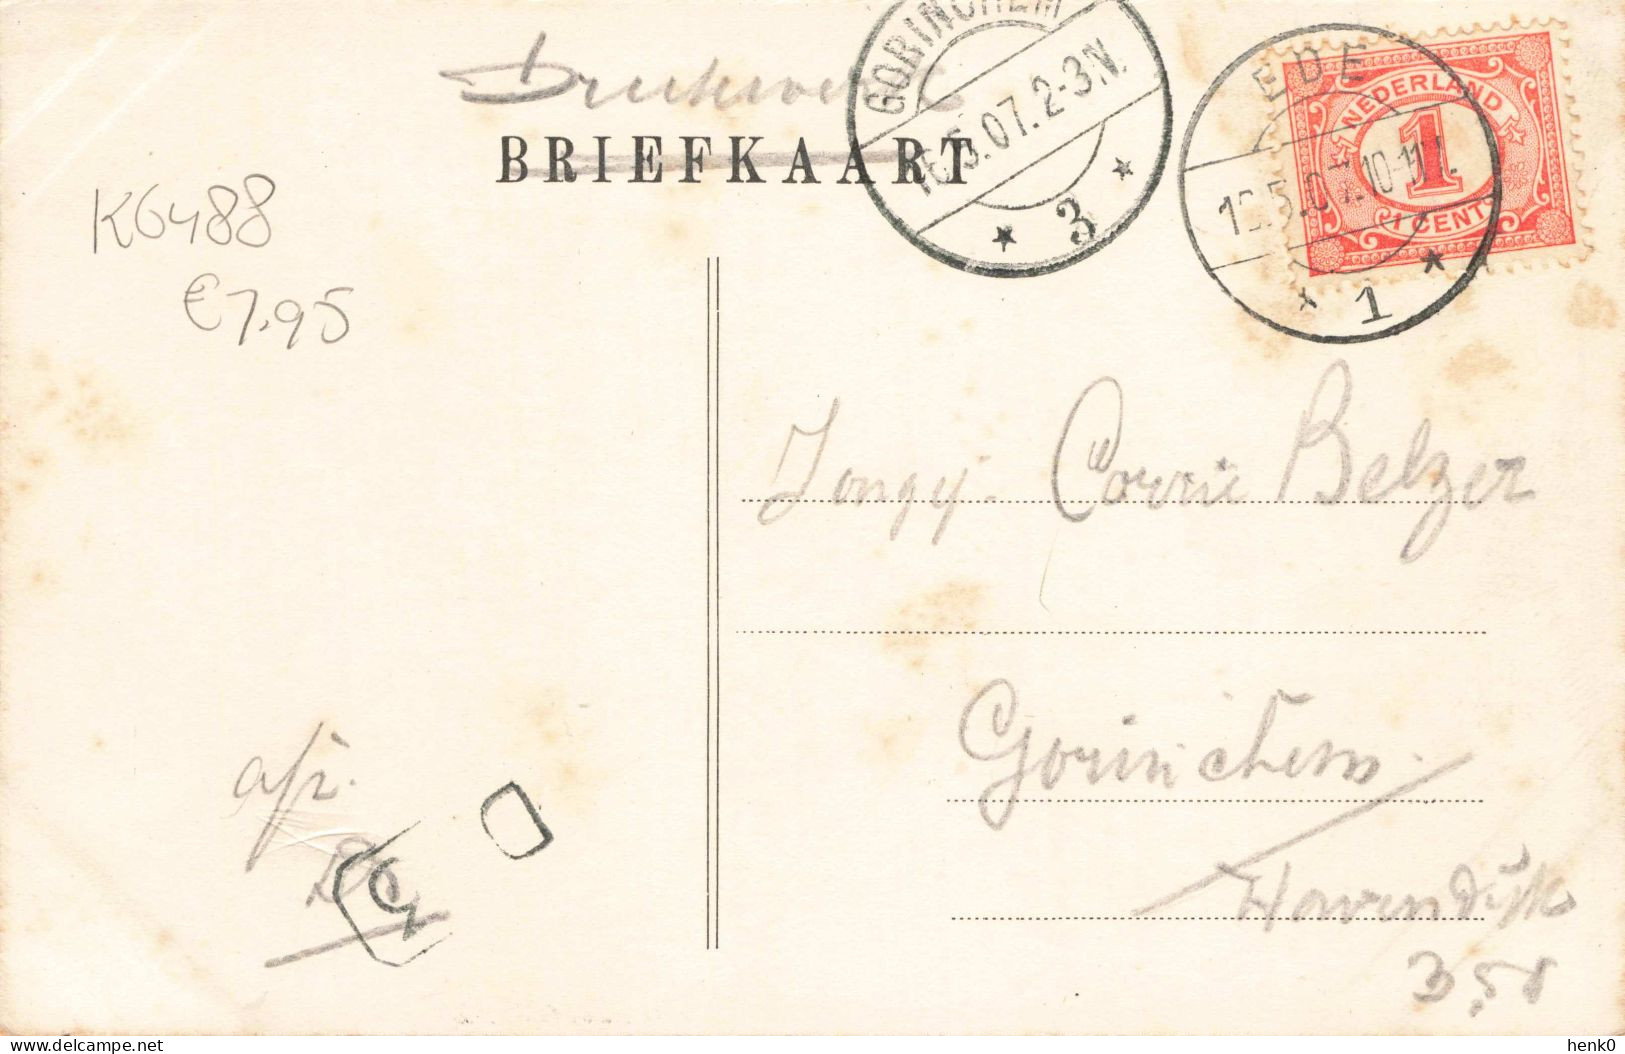 Drukwerk
BRIEFKAART
GORINCHEM
16.5.07.2-3N.
3
EDE
16.5.07.10-11V.
1
NEDERLAND
1
1 CENT
K6488
€7.95
Jongej. Corrie Belzer
Gorinchem.
Havendijk
B 58
afz.
delcampe.net
henk0